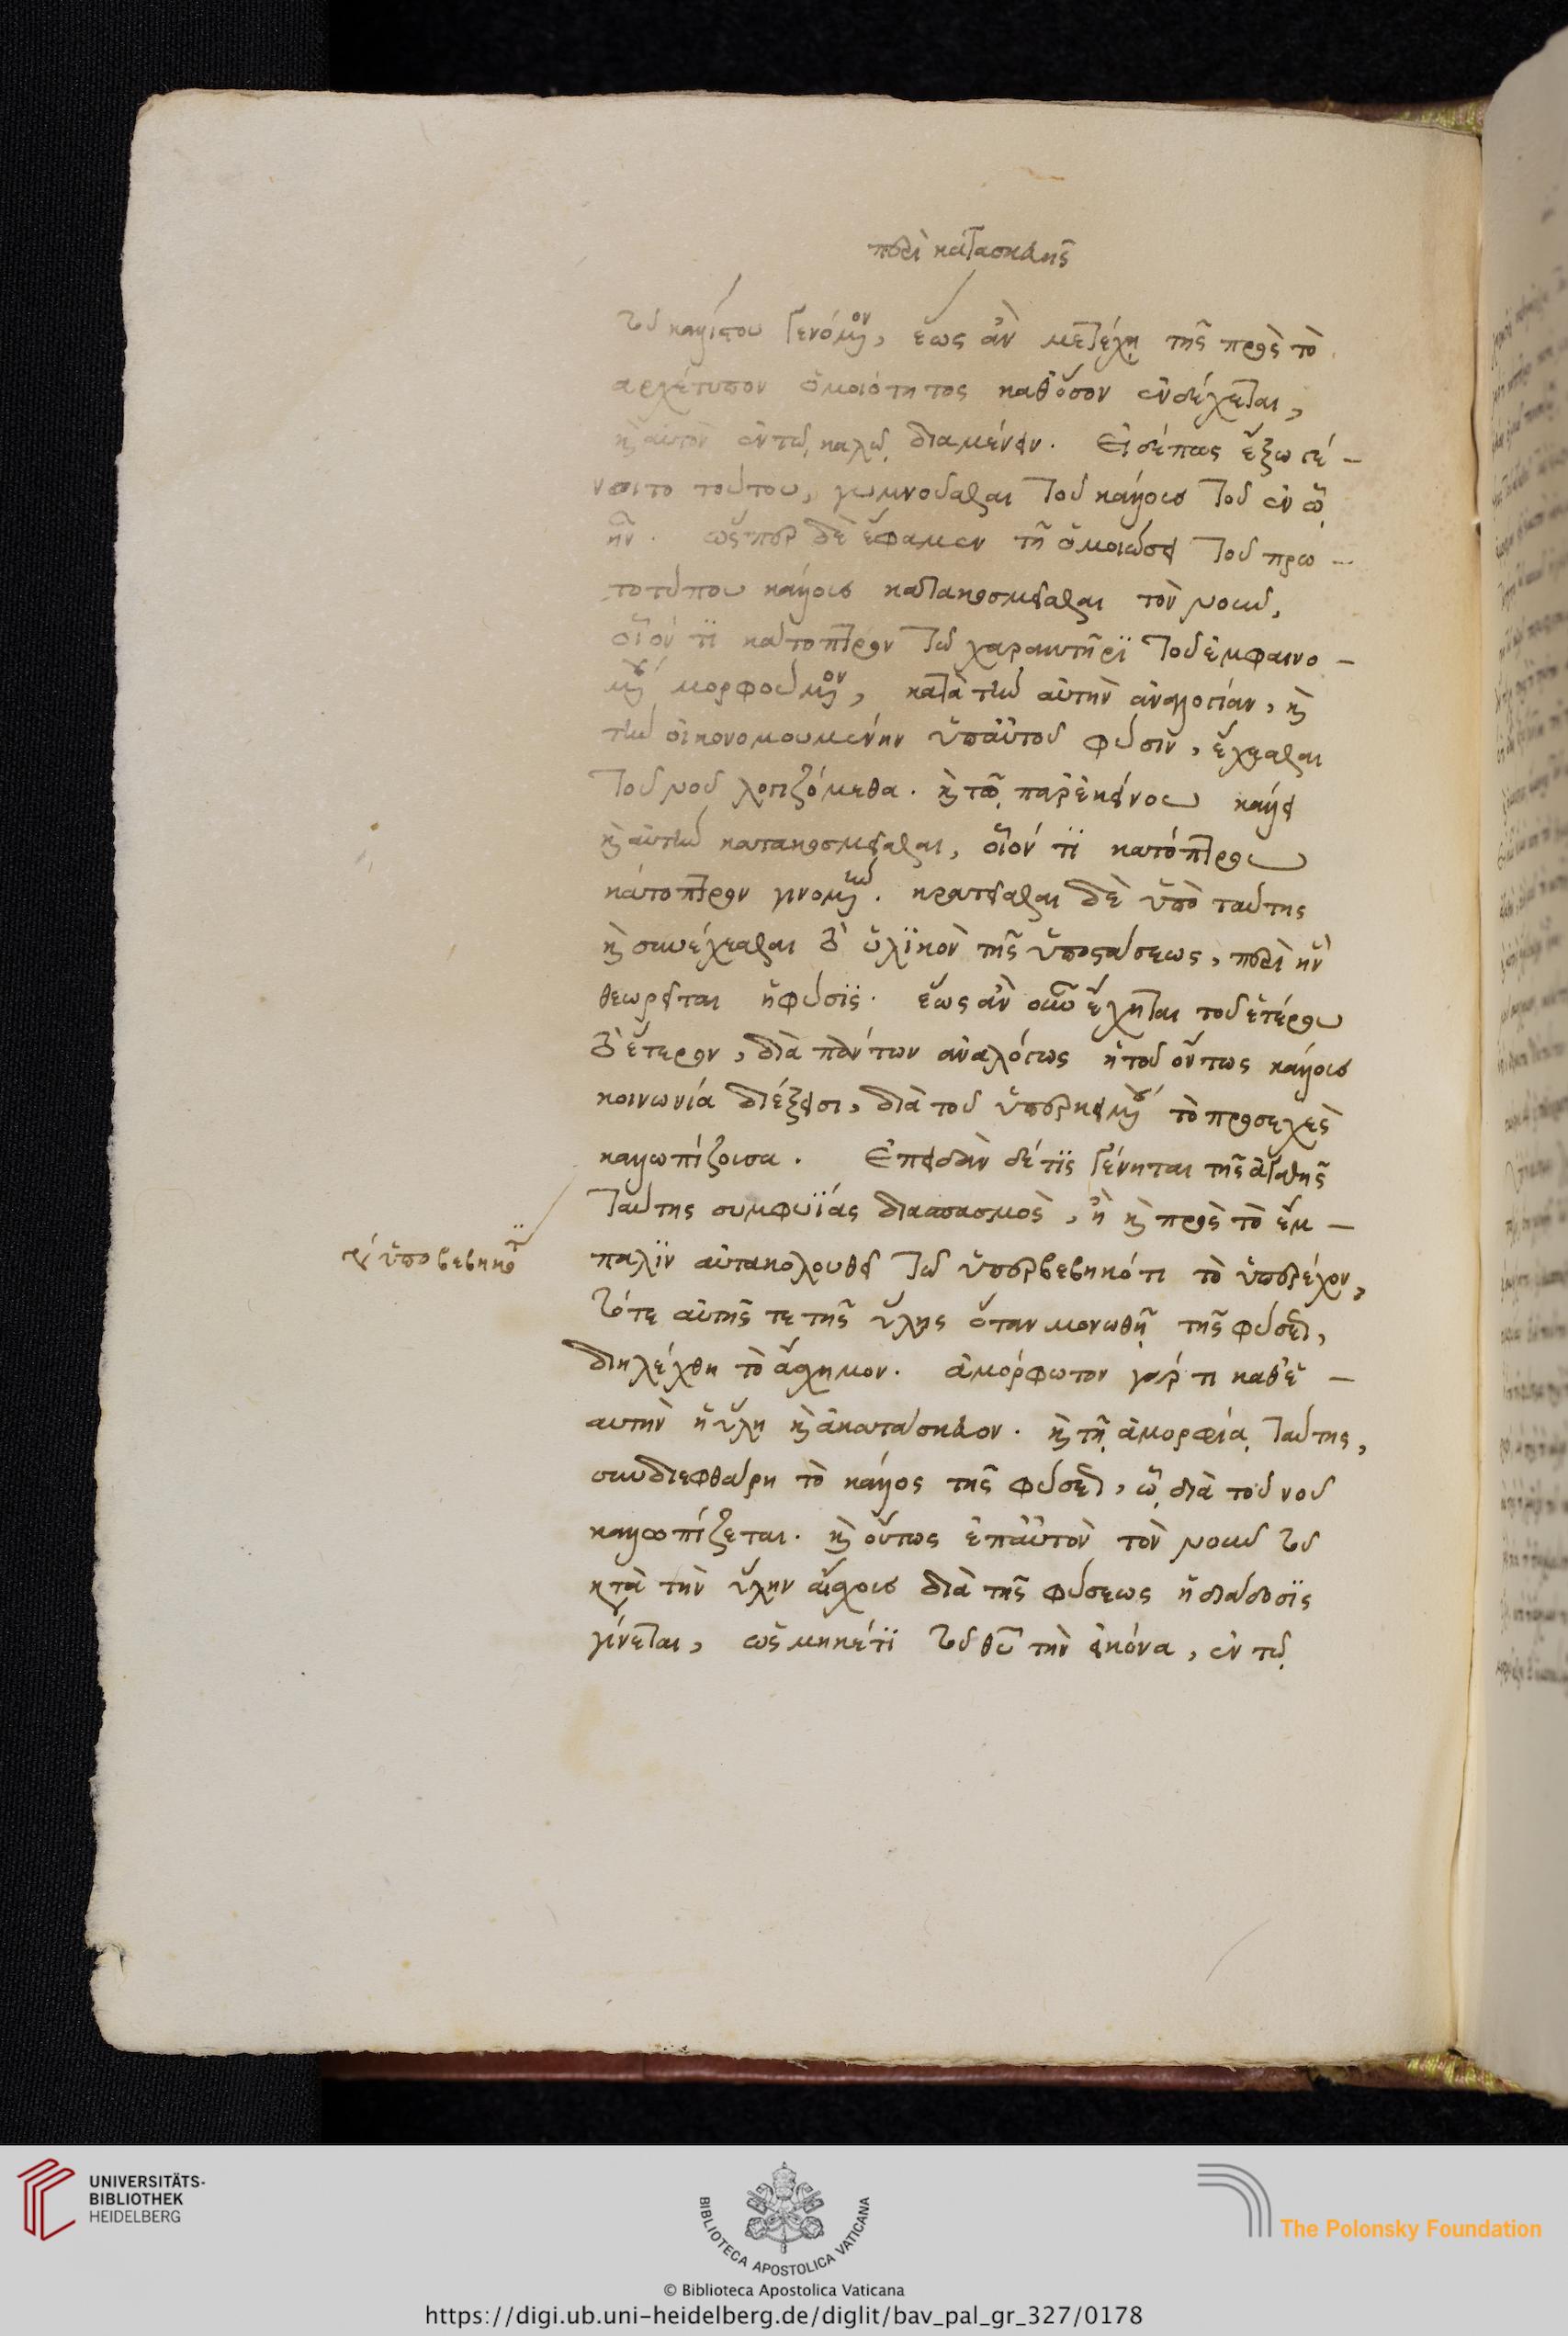 περὶ κατασκευῆς
τοῦ καλλίστου γενόμενον, ἕως ἂν μετέχῃ τῆς πρὸς τὸ
ἀρχέτυπον ὁμοιότητος καθ᾽ ὅσον ἐνδέχεται,
καὶ αὐτὸν ἐν τῷ καλῷ διαμένειν. Εἰ δέ πως ἔξω γέ-
νοιτο τούτου, γυμνοῦσθαι τοῦ κάλλους τοῦ ἐν ᾧ
ἦν. ὥσπερ δὲ ἔφαμεν τῇ ὁμοιώσει τοῦ πρω-
τοτύπου κάλλους κατακοσμεῖσθαι τὸν νοῦν,
οἷόν τι κάτοπτρον τῷ χαρακτῆρι τοῦ ἐμφαινο-
μένου μορφούμενον, κατὰ τὴν αὐτὴν ἀναλογίαν, καὶ
τὴν οἰκονομουμένην ὑπ᾽ αὐτοῦ φύσιν, ἔχεσθαι
τοῦ νοῦ λογιζόμεθα. καὶ τῷ παρ᾽ ἐκείνου κάλλει
καὶ αὐτὴν κατακοσμεῖσθαι, οἷόν τι κατόπτρου
κάτοπτρον γινομένην. κρατεῖσθαι δὲ ὑπὸ ταύτης
καὶ συνέχεσθαι τὸ ὑλικὸν τῆς ὑποστάσεως, περὶ ἣν
θεωρεῖται ἡ φύσις. ἕως ἂν οὖν ἔχηται τοῦ ἑτέρου
τὸ ἕτερον, διὰ πάντων ἀναλόγως ἡ τοῦ ὄντως κάλλους
κοινωνία διέξεισι, διὰ τοῦ ὑπερκειμένου τὸ προσεχὲς
καλλωπίζουσα. Ἐπειδὰν δέ τις γένηται τῆς ἀγαθῆς
ταύτης συμφυΐας διασπασμὸς, ἢ καὶ πρὸς τὸ ἔμ-
παλιν ἀντακολουθεῖ τῷ ὑπερβεβηκότι τὸ ὑπερέχον,
τότε αὐτῆς τε τῆς ὕλης ὅταν μονωθῇ τῆς φύσεως,
διηλέχθη τὸ ἄσχημον. ἄμόρφωτον γάρ τι καθ᾽ ἑ-
αυτὴν ἡ ὕλη καὶ ἀκατάσκευον. καὶ τῇ ἀμορφίᾳ ταύτης,
συνδιεφθάρη τὸ κάλλος τῆς φύσεως, ᾧ διὰ τοῦ νοῦ
καλλωπίζεται. καὶ οὕτως ἐπ᾽ αὐτὸν τὸν νοῦν τοῦ
κατὰ τὴν ὕλην αἴσχους διὰ τῆς φύσεως ἡ διάδοσις
γίνεται, ὡς μηκέτι τοῦ θεοῦ τὴν εἰκόνα, ἐν τῷ
ὑποβεβηκότι
UNIVERSITÄTS-
BIBLIOTHEK
HEIDELBERG
BIBLIOTECA APOSTOLICA VATICANA
The Polonsky Foundation
© Biblioteca Apostolica Vaticana
https://digi.ub.uni-heidelberg.de/diglit/bav_pal_gr_327/0178